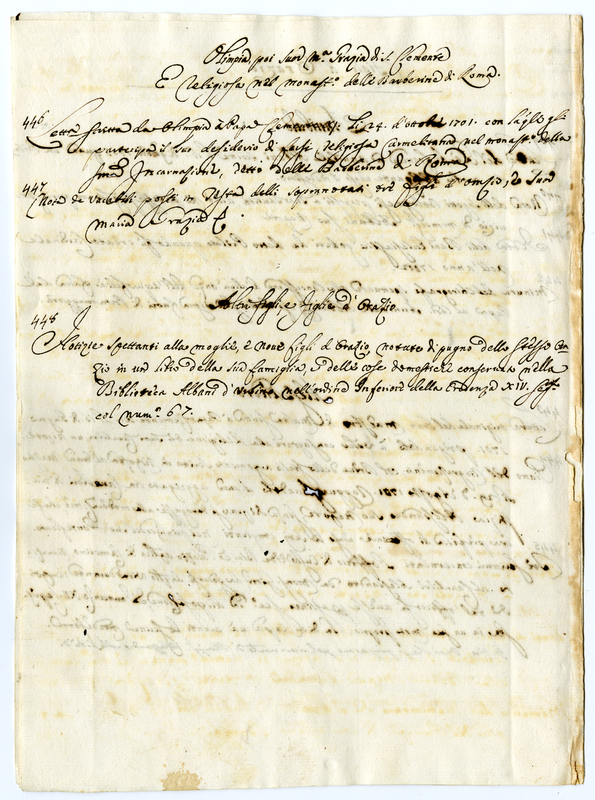 Olimpia poi Suor Mª Grazia di S. Clemente
E Religiosa nel monastº delle Barberine di Roma.
446
Lettª scritta da Olimpia à Papa Clemente XI. li 24. d'ottobre 1701. con la qle gli
partecipa il suo desiderio di farsi Religiosa Carmelitana nel monastº della
Smª Incarnazione, detto delle Barberine di Roma
447
Nota de vacabili posti in testa delli sopranotati tre figli d'Orazio, e Suor
Maria Grazia
Altri figli, e figlie d'Orazio
448
Notizie spettanti alla moglie, e nove figli d'Orazio, notate di pugno dello stesso Ora-
zio in un libro della sua famiglia, e delle cose domestiche conservato nella
Biblioteca Albani d'Urbino nell'ordine Inferiore della Credenza XIV.
col numº 67.